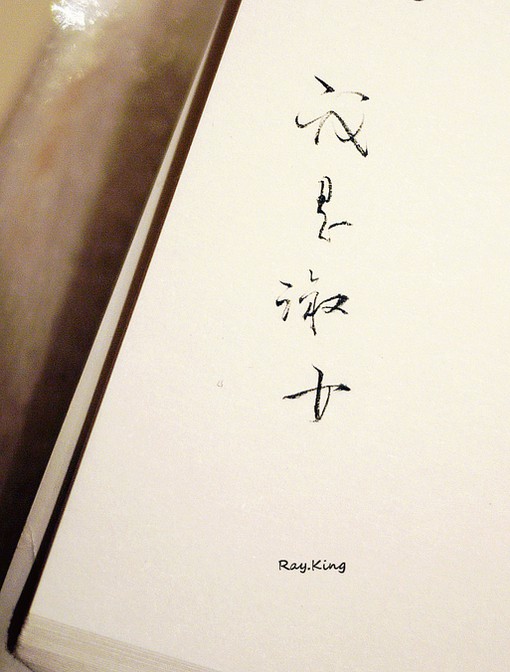 我是淑女
Ray.King